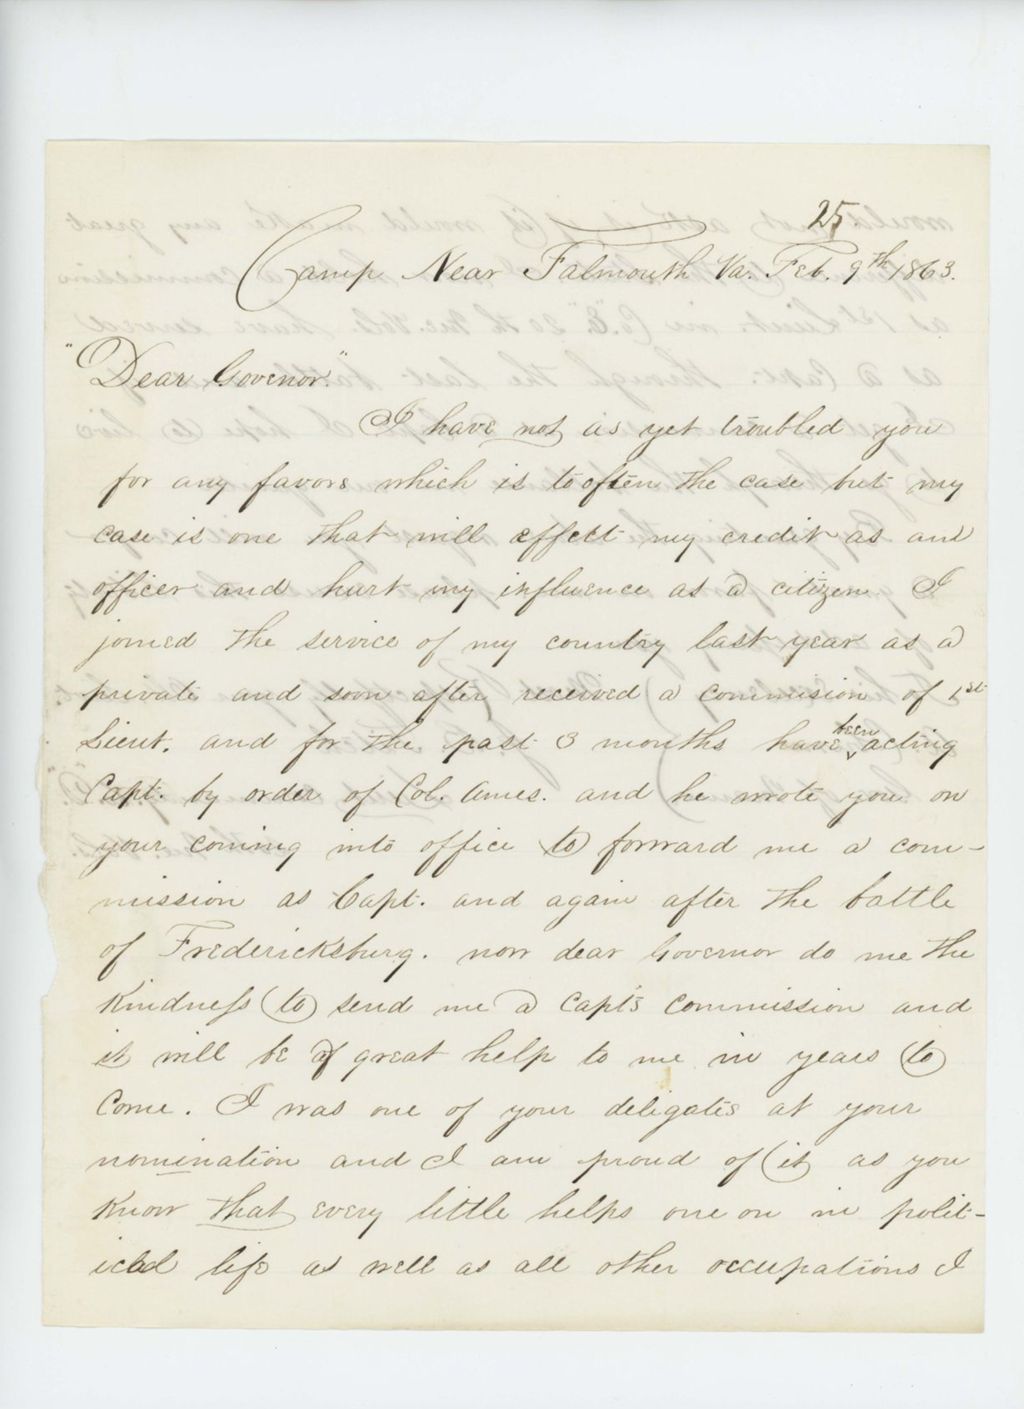 25
Camp Near Falmouth Va. Feb. 9th 1863.
"Dear Govenor."
I have not as yet troubled you
for any favors which is to often the case but my
case is one that will effect my credit as and
officer and hurt my influence as a citizen. I
joined the service of my country last year as a
private and soon after received a commision of 1st
Lieut. and for the past 3 months have been acting
Capt. by order of Col. Ames. and he wrote you on
your coming into office to forward me a com-
mission as Capt. and again after the battle
of Fredericksburg. now dear Governor do me the
kindness to send me a Capts commission and
it will be of great help to me in years to
come. I was one of your deligates at your
nomination and I am proud of it as you
know that every little helps one on in polit-
icial life as well as all other occupations I